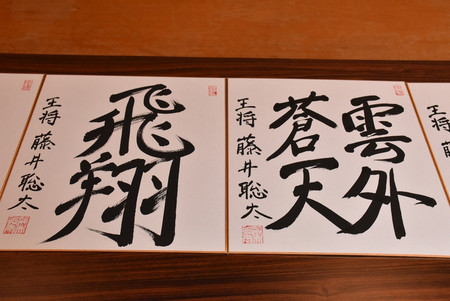 雲外
蒼天
王将 藤井聡太
飛翔
王将 藤井聡太
王将